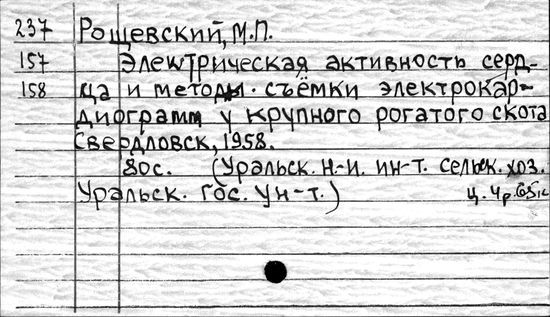 237 Рощевский, М.П.
157 Электрическая активность серд-
158 ца и методы съёмки электрокар-
диограмм у крупного рогатого скота
Свердловск, 1958.
80с. (Уральск. н-и. ин-т. сельск. хоз.
Уральск. Гос. Ун-т.) ц. 4р.65к